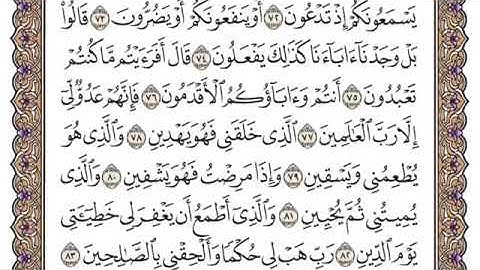 يَسْمَعُونَكُمْ إِذْ تَدْعُونَ ٧٢ أَوْ يَنفَعُونَكُمْ أَوْ يَضُرُّونَ ٧٣ قَالُوا۟
بَلْ وَجَدْنَآ ءَابَآءَنَا كَذَٰلِكَ يَفْعَلُونَ ٧٤ قَالَ أَفَرَءَيْتُم مَّا كُنتُمْ
تَعْبُدُونَ ٧٥ أَنتُمْ وَءَابَآؤُكُمُ ٱلْأَقْدَمُونَ ٧٦ فَإِنَّهُمْ عَدُوٌّ لِّىٓ
إِلَّا رَبَّ ٱلْعَٰلَمِينَ ٧٧ ٱلَّذِى خَلَقَنِى فَهُوَ يَهْدِينِ ٧٨ وَٱلَّذِى هُوَ
يُطْعِمُنِى وَيَسْقِينِ ٧٩ وَإِذَا مَرِضْتُ فَهُوَ يَشْفِينِ ٨٠ وَٱلَّذِى
يُمِيتُنِى ثُمَّ يُحْيِينِ ٨١ وَٱلَّذِىٓ أَطْمَعُ أَن يَغْفِرَ لِى خَطِيٓـَٔتِى
يَوْمَ ٱلدِّينِ ٨٢ رَبِّ هَبْ لِى حُكْمًا وَأَلْحِقْنِى بِٱلصَّٰلِحِينَ ٨٣